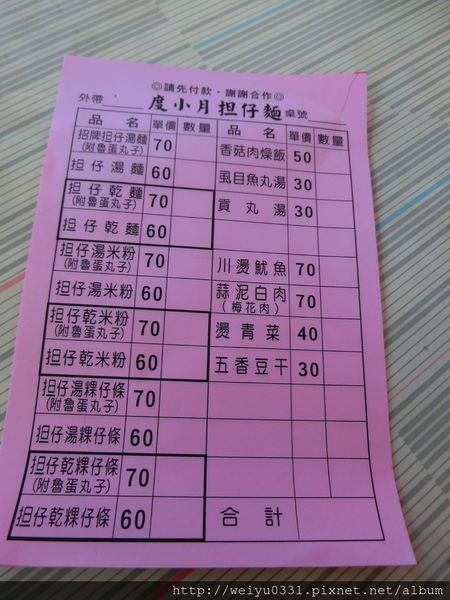 ◎請先付款·謝謝合作◎
外帶 度小月担仔麵 桌號
品名 單價 數量 品名 單價 數量
招牌担仔湯麵 70 香菇肉燥飯 50
(附魯蛋丸子)
担仔湯麵 60 虱目魚丸湯 30
担仔乾麵 70 貢丸湯 30
(附魯蛋丸子)
担仔乾麵 60
担仔湯米粉 70 川燙魷魚 70
(附魯蛋丸子)
担仔湯米粉 60 蒜泥白肉 70
(梅花肉)
担仔乾米粉 70 燙青菜 40
(附魯蛋丸子)
担仔乾米粉 60 五香豆干 30
担仔湯粿仔條 70
(附魯蛋丸子)
担仔湯粿仔條 60
担仔乾粿仔條 70
(附魯蛋丸子)
担仔乾粿仔條 60 合計
http://weiyu0331.pixnet.net/album